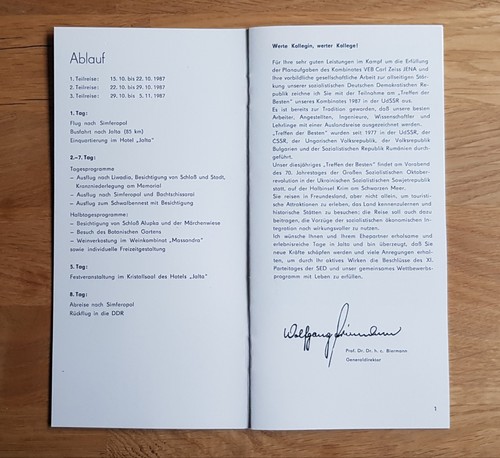 Ablauf
1. Teilreise: 15. 10. bis 22. 10. 1987
2. Teilreise: 22. 10. bis 29. 10. 1987
3. Teilreise: 29. 10. bis 5. 11. 1987
1. Tag:
Flug nach Simferopol
Busfahrt nach Jalta (85 km)
Einquartierung im Hotel „Jalta"
2.–7. Tag:
Tagesprogramme
– Ausflug nach Livadia, Besichtigung von Schloß und Stadt,
Kranzniederlegung am Memorial
– Ausflug nach Simferopol und Bachtschissarai
– Ausflug zum Schwalbennest mit Besichtigung
Halbtagesprogramme:
– Besichtigung von Schloß Alupka und der Märchenwiese
– Besuch des Botanischen Gartens
– Weinverkostung im Weinkombinat „Massandra"
sowie individuelle Freizeitgestaltung
5. Tag:
Festveranstaltung im Kristallsaal des Hotels „Jalta"
8. Tag:
Abreise nach Simferopol
Rückflug in die DDR
Werte Kollegin, werter Kollege!
Für Ihre sehr guten Leistungen im Kampf um die Erfüllung
der Planaufgaben des Kombinates VEB Carl Zeiss JENA und
Ihre vorbildliche gesellschaftliche Arbeit zur allseitigen Stär-
kung unserer sozialistischen Deutschen Demokratischen Re-
publik zeichne ich Sie mit der Teilnahme am „Treffen der
Besten" unseres Kombinates 1987 in der UdSSR aus.
Es ist bereits zur Tradition geworden, daß unsere besten
Arbeiter, Angestellten, Ingenieure, Wissenschaftler und
Lehrlinge mit einer Auslandsreise ausgezeichnet werden.
„Treffen der Besten" wurden seit 1977 in der UdSSR, der
CSSR, der Ungarischen Volksrepublik, der Volksrepublik
Bulgarien und der Sozialistischen Republik Rumänien durch-
geführt.
Unser diesjähriges „Treffen der Besten" findet am Vorabend
des 70. Jahrestages der Großen Sozialistischen Oktober-
revolution in der Ukrainischen Sozialistischen Sowjetrepublik
statt, auf der Halbinsel Krim am Schwarzen Meer.
Sie reisen in Freundesland, aber nicht allein, um touristi-
sche Attraktionen zu erleben, das Land kennenzulernen und
historische Stätten zu besuchen; die Reise soll auch dazu
beitragen, die Vorzüge der sozialistischen ökonomischen In-
tegration noch wirkungsvoller zu nutzen.
Ich wünsche Ihnen und Ihrem Ehepartner erholsame und
erlebnisreiche Tage in Jalta und bin überzeugt, daß Sie
neue Kräfte schöpfen werden und viele Anregungen erhal-
ten, um durch Ihr aktives Wirken die Beschlüsse des XI.
Parteitages der SED und unser gemeinsames Wettbewerbs-
programm mit Leben zu erfüllen.
Wolfgang Biermann
Prof. Dr. Dr. h. c. Biermann
Generaldirektor
1